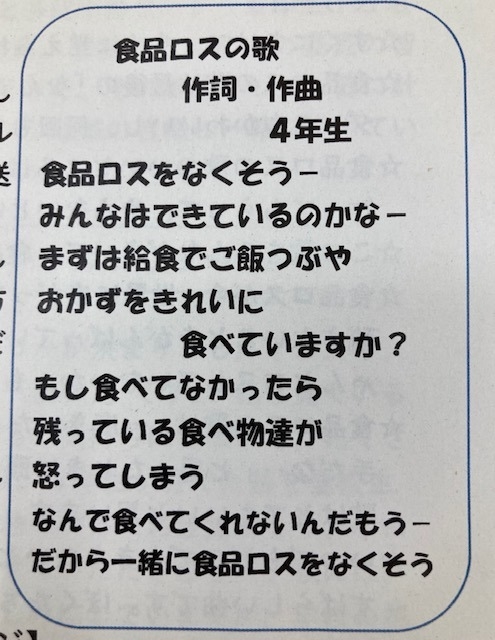 食品ロスの歌
作詞・作曲
4年生
食品ロスをなくそうー
みんなはできているのかなー
まずは給食でご飯つぶや
おかずをきれいに
食べていますか？
もし食べてなかったら
残っている食べ物達が
怒ってしまう
なんで食べてくれないんだもうー
だから一緒に食品ロスをなくそう